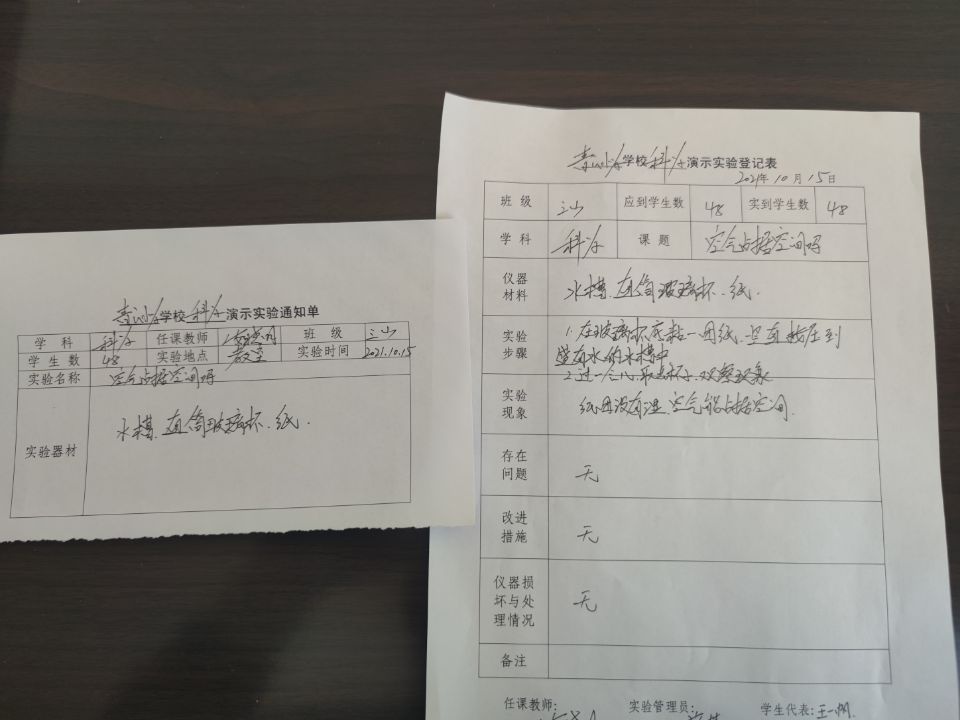 学校科学演示实验通知单
学科 科学 任课教师 班级 三山
学生数 48 实验地点 教室 实验时间 2021.10.15
实验名称 空气占据空间吗
实验器材 水槽、直筒玻璃杯、纸.
学校科学演示实验登记表
2021年10月15日
班级 三山 应到学生数 48 实到学生数 48
学科 科学 课题 空气占据空间吗
仪器
材料 水槽、直筒玻璃杯、纸.
实验
步骤 1.在玻璃杯底粘一团纸,竖直按压到
盛有水的水槽中
2.过一会儿,取出杯子,观察现象
实验
现象 纸团没有湿,空气能占据空间.
存在
问题 无
改进
措施 无
仪器损
坏与处
理情况 无
备注
任课教师: 实验管理员: 学生代表:王一帆